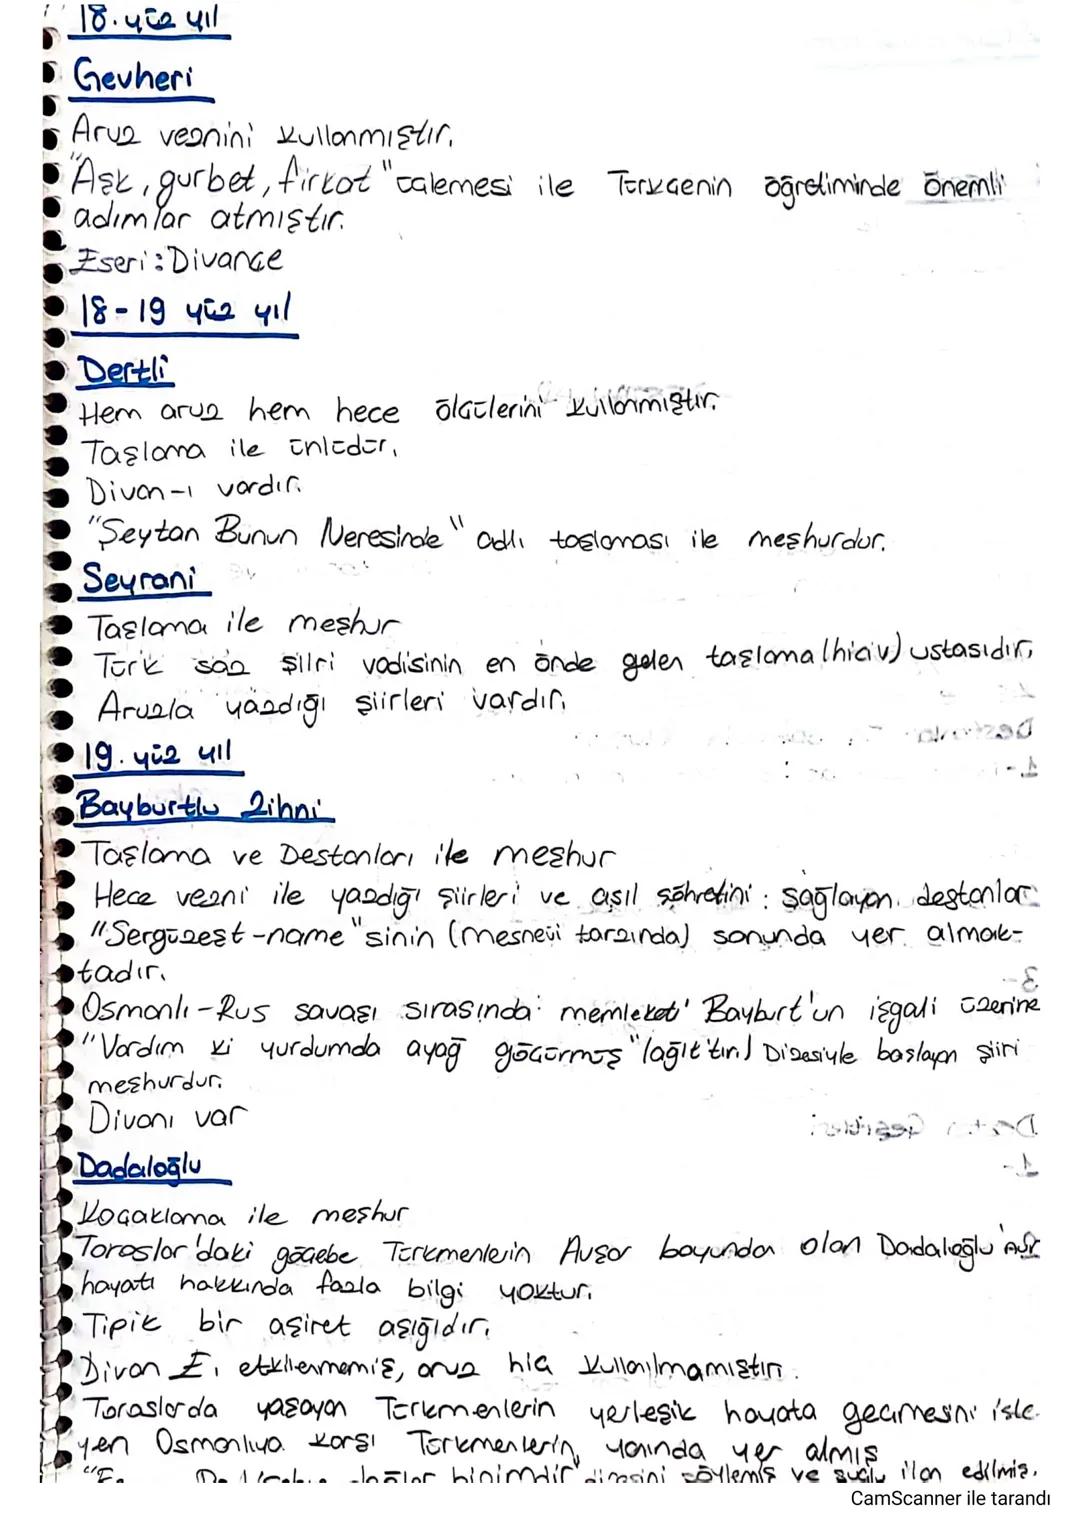 18. yüz yıl
Gevheri
Aruz veznini kullanmıştır.
"Aşk, gurbet, firkat" calemesi ile Türkçenin öğretiminde önemli
adımlar atmıştır.
Eseri: Divançe
18-19 yüz yıl
Dertli
Hem aruz hem hece ölçülerini kullanmıştır.
Taşlama ile ünlüdür.
Divan-ı vardır.
"Şeytan Bunun Neresinde" adlı taşlaması ile meşhurdur.
Seyrani
Taşlama ile meşhur
Türk saz şiiri vadisinin en önde gelen taşlama (hiciv) ustasıdır.
Aruzla yazdığı şiirleri vardır.
19. yüz yıl
Bayburtlu Zihni
Taşlama ve Destanları ile meşhur
Hece vezni ile yazdığı şiirleri ve aşıl şöhretini sağlayan destanlar
"Sergüzeşt-name"sinin (mesnevi tarzında) sonunda yer almak-
tadır.
Osmanlı-Rus savaşı sırasında memleketi Bayburt'un işgali üzerine
"Vardım ki yurdumda ayağ göçürmüş" (ağıt'tır.) Dizesiyle başlayan şiiri
meşhurdur.
Divanı var
Dadaloğlu
Koçaklama ile meşhur
Toroslar'daki göçebe Türkmenlerin Avşar boyundan olan Dadaloğlu'nun
hayatı hakkında fazla bilgi yoktur.
Tipik bir aşiret aşığıdır.
Divan E. etkilenmemiş, aruz hiç kullanılmamıştır.
Toroslarda yaşayan Türkmenlerin yerleşik hayata geçmesini iste-
yen Osmanlıya karşı Türkmenlerin yanında yer almış
dağlar bizimdir" dizesini söylemiş ve suçlu ilan edilmiş.
CamScanner ile tarandı